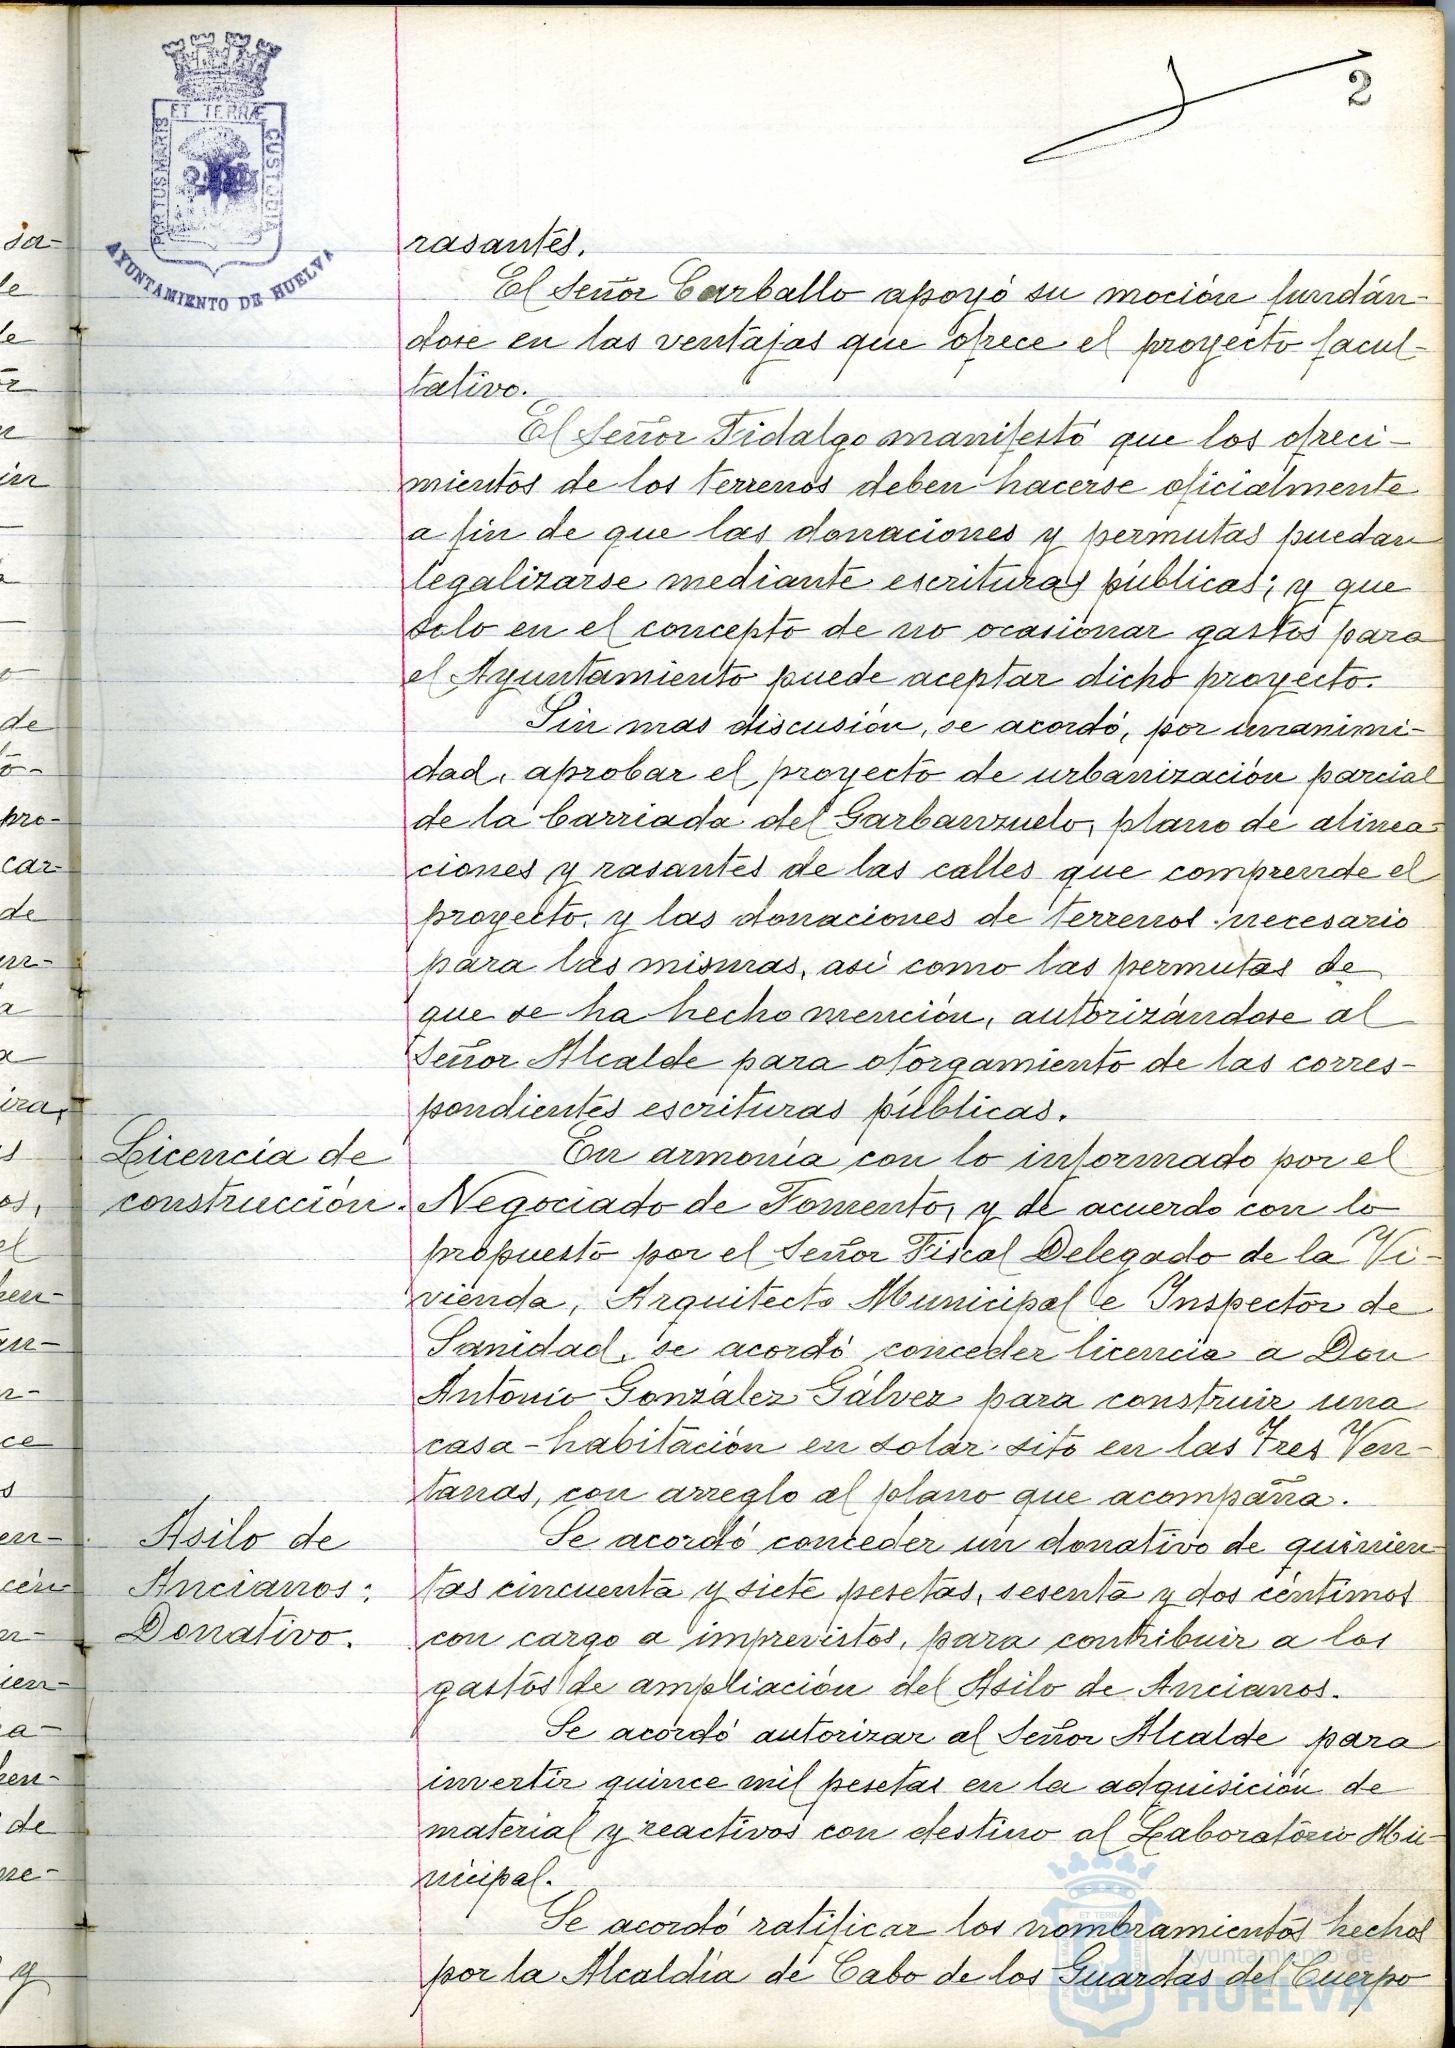 2
PORTUS MARIS
ET TERRÆ
CUSTODIA
AYUNTAMIENTO DE HUELVA
rasantes.
El Señor Carballo apoyó su moción fundán-
dose en las ventajas que ofrece el proyecto facul-
tativo.
El Señor Fidalgo manifestó que los ofreci-
mientos de los terrenos deben hacerse oficialmente
a fin de que las donaciones y permutas puedan
legalizarse mediante escrituras públicas; y que
solo en el concepto de no ocasionar gastos para
el Ayuntamiento puede aceptar dicho proyecto.
Sin mas discusión, se acordó, por unanimi-
dad, aprobar el proyecto de urbanización parcial
de la barriada del Garbanzuelo, plano de alinea-
ciones y rasantes de las calles que comprende el
proyecto, y las donaciones de terrenos necesario
para las mismas, asi como las permutas de
que se ha hecho mención, autorizándose al
Señor Alcalde para otorgamiento de las corres-
pondientes escrituras públicas.
Licencia de
construcción.
En armonía con lo informado por el
Negociado de Fomento, y de acuerdo con lo
propuesto por el Señor Fiscal Delegado de la Vi-
vienda, Arquitecto Municipal e Inspector de
Sanidad, se acordó conceder licencia a Don
Antonio González Gálvez para construir una
casa-habitación en solar sito en las Tres Ven-
tanas, con arreglo al plano que acompaña.
Asilo de
Ancianos:
Donativo.
Se acordó conceder un donativo de quinien
tas cincuenta y siete pesetas, sesenta y dos céntimos
con cargo a imprevistos, para contribuir a los
gastos de ampliación del Asilo de Ancianos.
Se acordó autorizar al Señor Alcalde para
invertir quince mil pesetas en la adquisición de
material y reactivos con destino al Laboratorio Mu-
nicipal.
Se acordó ratificar los nombramientos hechos
por la Alcaldía de Cabo de los Guardas del Cuerpo
Ayuntamiento de
HUELVA